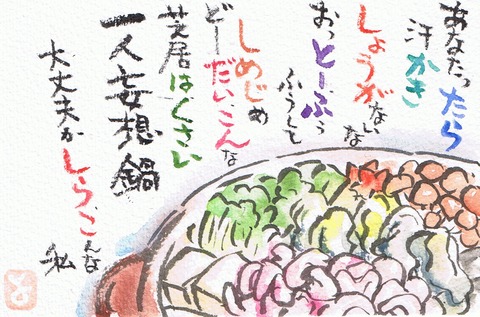 あなたったら
汗かき
しょうがないな
おっとーふぅ
ふうして
しめじめ
どーだいこんな
芝居はくさい
一人妄想鍋
大丈夫かしらこんな
私